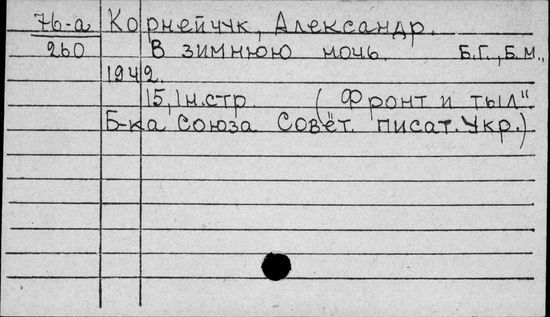 76-а Корнейчук, Александр.
260 В зимнюю ночь. Б.Г., Б.М.,
1942.
15, 1н.стр. (Фронт и тыл"
Б-ка Союза Совет. писат. Укр.)